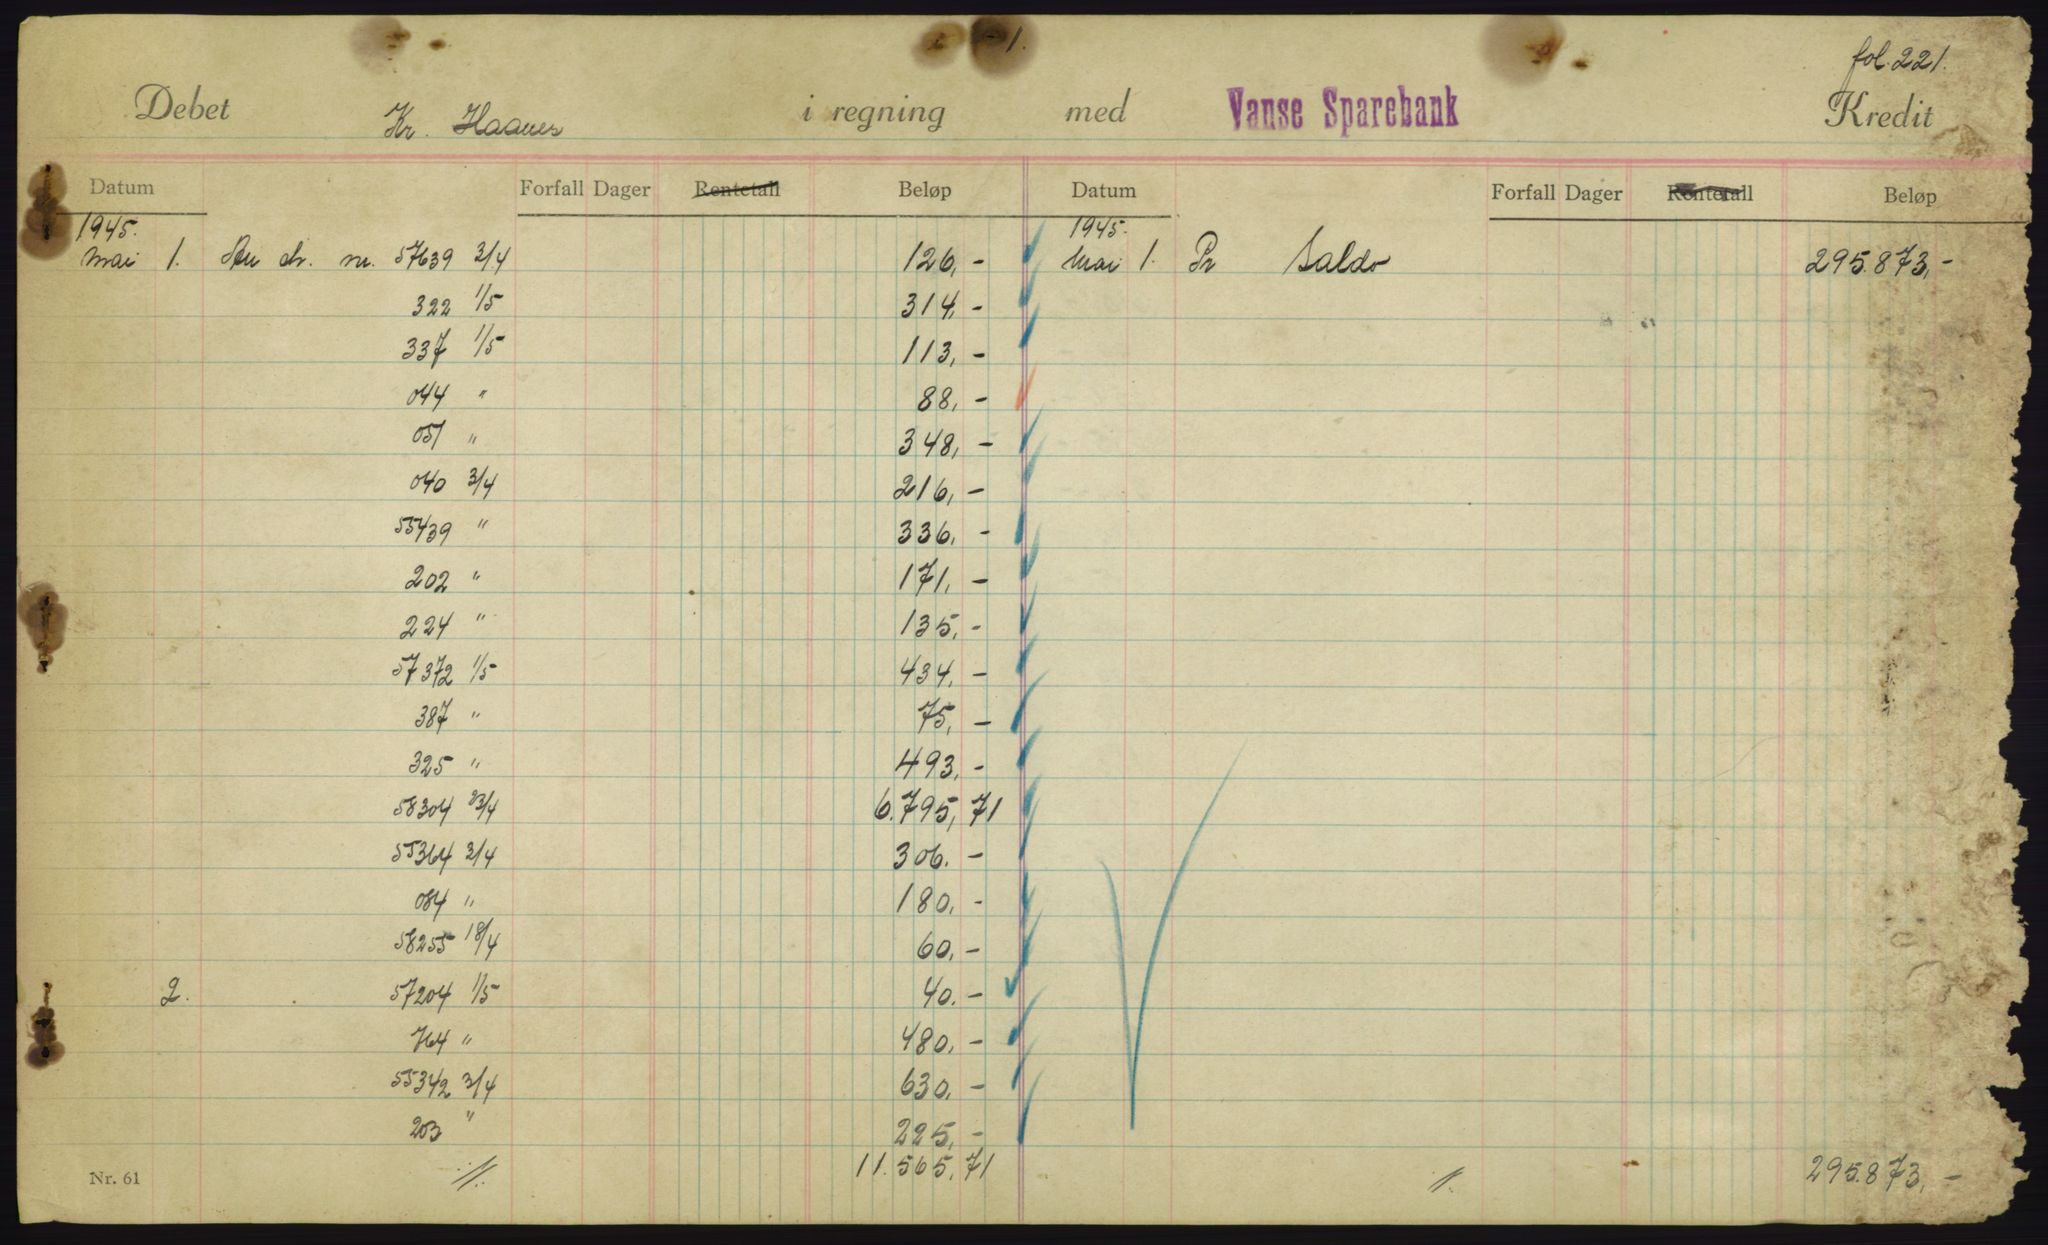 1.
fol. 221.
Debet Kr. Haanes i regning med Vanse Sparebank Kredit
Datum Forfall Dager Rentetall Beløp Datum Forfall Dager Rentetall Beløp
1945. 1945.
Mai 1. An ch. nr. 57639 3/4 126,- Mai 1. Pr Saldo 295.873,-
322 1/5 314,-
337 1/5 113,-
044 " 88,-
051 " 348,-
040 3/4 216,-
55439 " 336,-
202 " 171,-
224 " 135,-
57372 1/5 434,-
387 " 75,-
325 " 493,-
58304 23/4 6.795,71
55364 3/4 306.-
084 " 180,-
58255 18/4 60,-
2. 57204 1/5 40.-
764 " 480,-
55342 3/4 630,-
203 " 225,-
Nr. 61 11.565,71 295.873,-